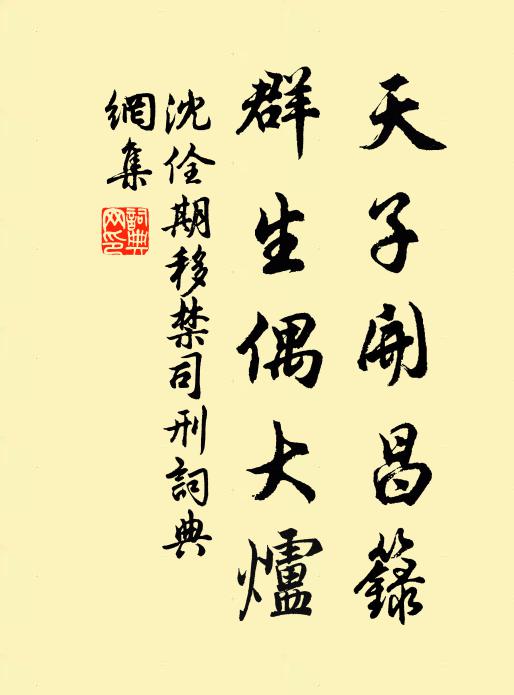 天子開昌籙
群生偶大爐
沈佺期移禁司刑詞典
網集
詞典
网印